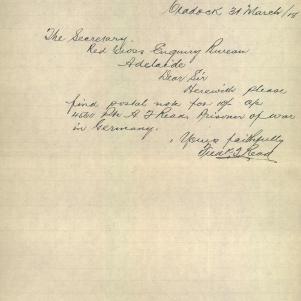 Cradock 31 March/18
The Secretary.
Red Cross Enquiry Bureau
Adelaide
Dear Sir
Herewith please
find postal note for 10/- a/c
4560 Pte A J Read, Prisoner of war
in Germany.
Yours faithfully
Fredk J Read